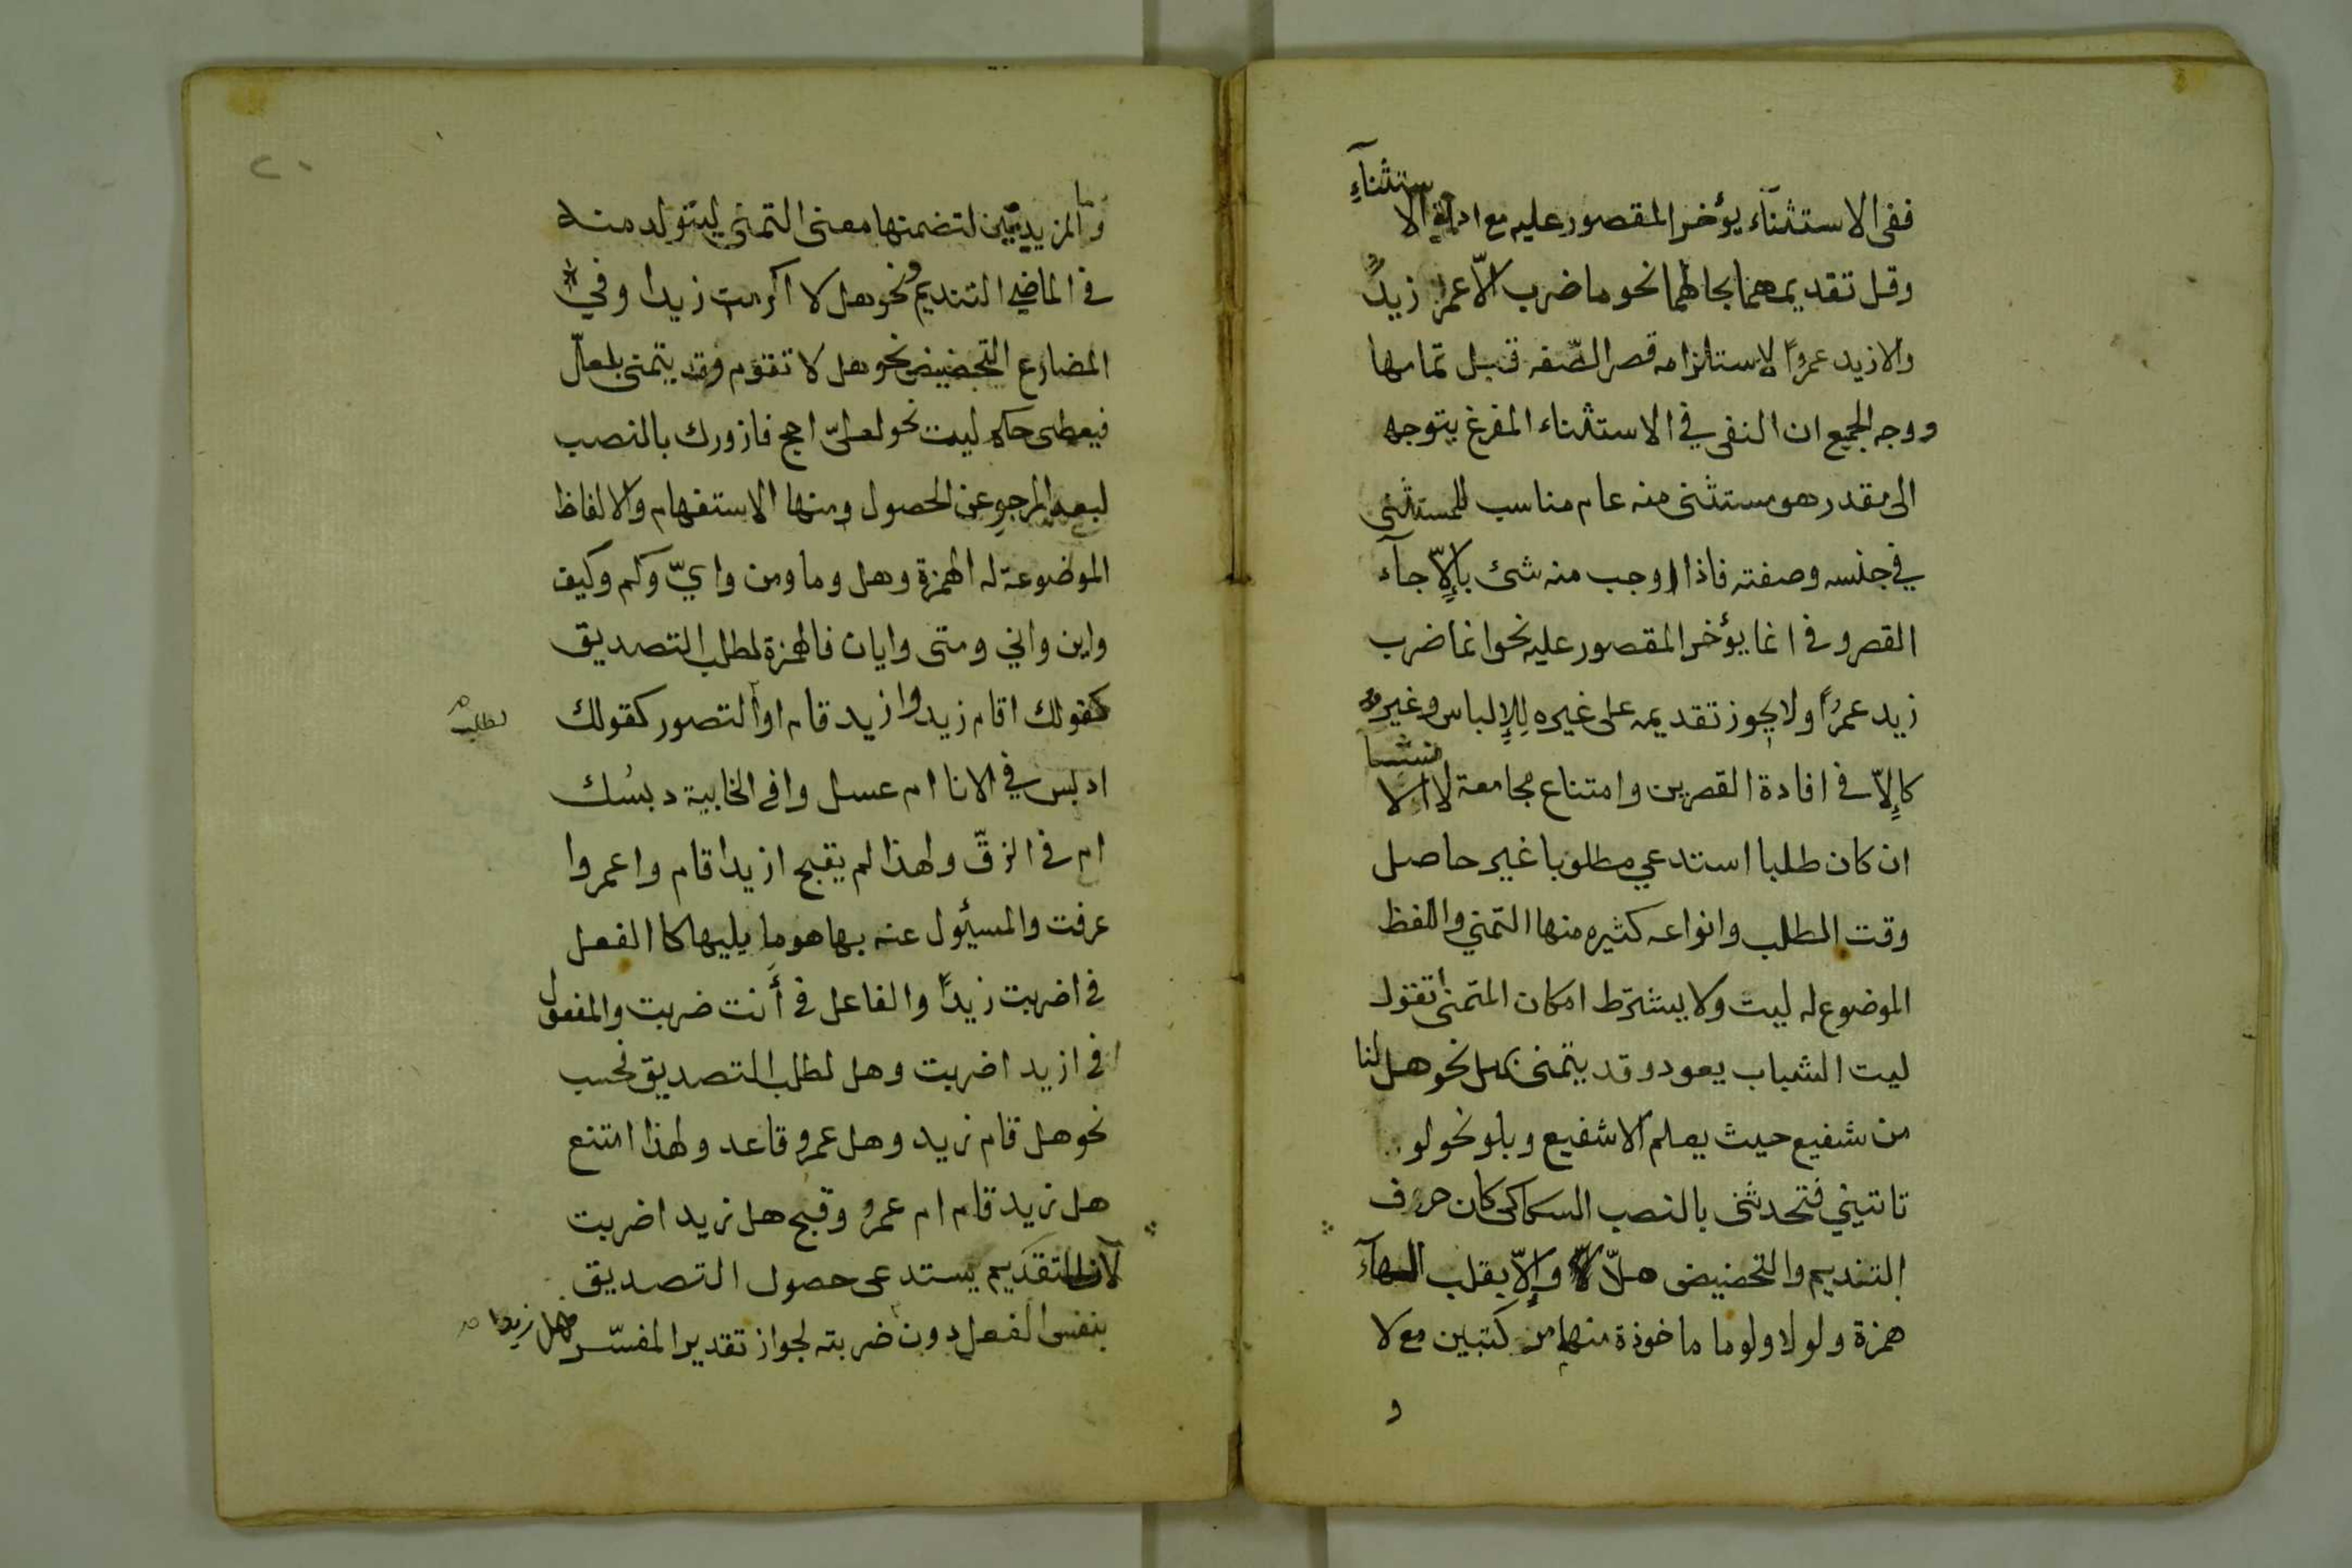 ففى الاستثناء يؤخر المقصور عليه مع اداة الاستثناء
وقل تقديمهما بحالهما نحو ما ضرب الّا عمرا زيدٌ
والا زيد عمروًا لاستلزامه قصر الصّفه قبل تمامها
ووجه الجميع ان النفى في الاستثناء المفرغ يتوجه
الى مقدر هو مستثنى منه عام مناسب للمستثنى
في جنسه وصفته فاذا اوجب منه شئ بإلاّ جآء
القصر وفى انما يؤخر المقصور عليه نحو انما ضرب
زيد عمرًوا ولا يجوز تقديمه على غيره للإلباس وغير
كإلاّ فى افادة القصرين وامتناع مجامعة لا الانشا
ان كان طلبا استدعي مطلوبا غير حاصل
وقت الطلب وانواعه كثيره منها التمني واللفظ
الموضوع له ليت ولا يشترط امكان المتمنى تقول
ليت الشباب يعود وقد يتمنى بهل نحو هل لنا
من شفيع حيث يعلم الا شفيع وبلو نحو لو
تاتيني فتحدثنى بالنصب السكاكى كان حروف
التنديم والتحضيض هلّا وإلاّ بقلب الهآء
همزة ولولا ولوما ماخوذة منهما مركبتين مع لا
و
وما المزيدتين لتضمنها معنى التمنى ليتولد منه
فى الماضي التنديم نحو هل لا اكرمت زيدا وفي
المضارع التحضيض نحو هل لا تقوم وقد يتمنى بلعلّ
فيعطى حكم ليت نحو لعلىّ احج فازورك بالنصب
لبعد المرجو عن الحصول ومنها الاستفهام والالفاظ
الموضوعة له الهمزة وهل وما ومن وايّ وكم وكيف
واين واني ومتى وايان فالهمزة لطلب التصديق
كقولك اقام زيد وازيد قام او التصور كقولك
لطلب
ادبس في الانا ام عسل وافى الخابية دبسُك
ام فى الزقّ ولهذا لم يقبح ازيدا قام واعمروا
عرفت والمسئول عنه بها هو ما يليها كا الفعل
فى اضربت زيدًا والفاعل فى أَنت ضربت والمفعول
فى ازيد اضربت وهل لطلب التصديق فحسب
نحو هل قام زيد وهل عمرو قاعد ولهذا امتنع
هل زيد قام ام عمرو وقبح هل زيد اضربت
لان التقديم يستدعى حصول التصديق
بنفس الفعل دون ضربته لجواز تقدير المفسّر
هل زيدا
٢٠